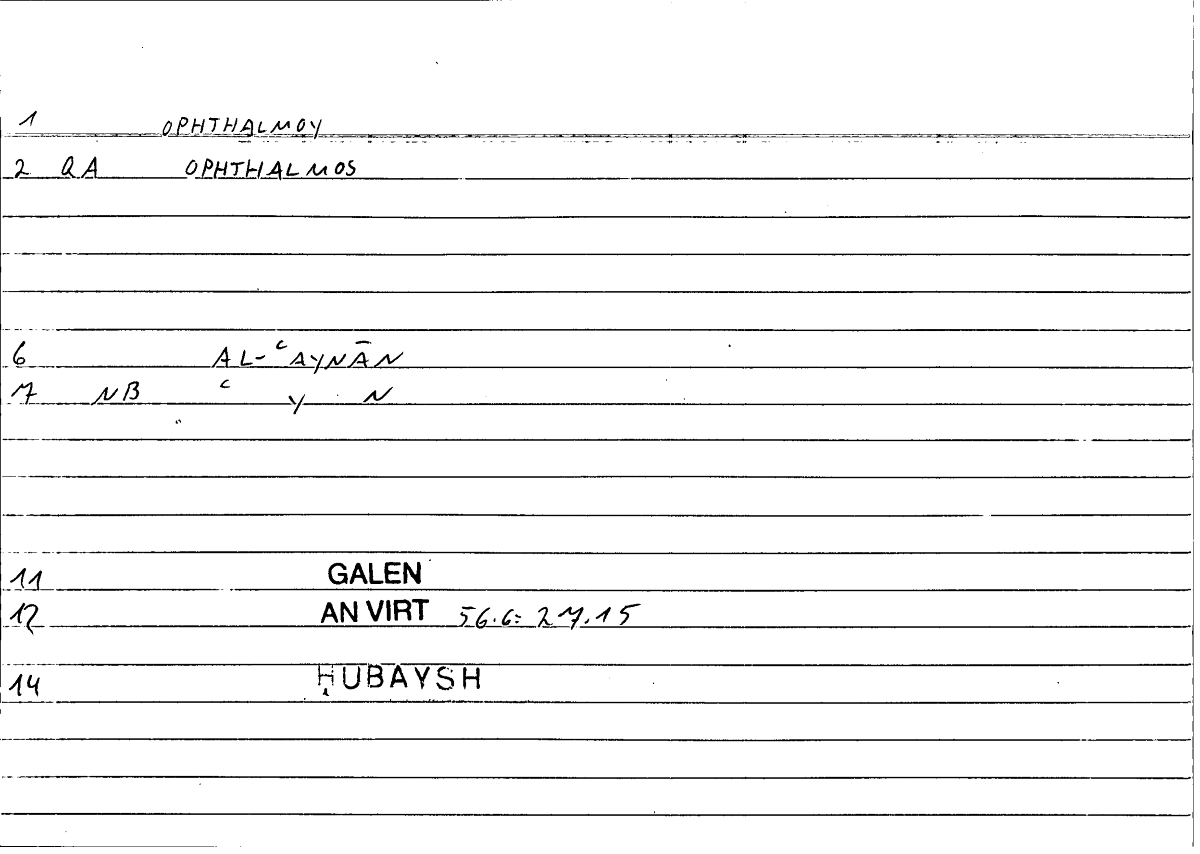 1 OPHTHALMOY
2 QA OPHTHALMOS
6 AL-ʿAYNĀN
7 NB ʿ Y N
11 GALEN
12 AN VIRT 56.6: 27.15
14 ḤUBAYSH